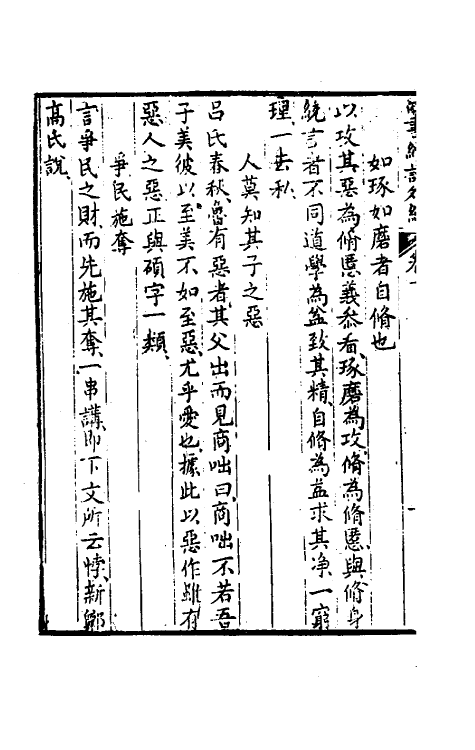 如琢如磨者自脩也
以攻其惡為脩慝義叅看琢磨為攻脩為脩慝與脩身
統言者不同道學為益致其精自脩為益求其净一窮
理一去私
人莫知其子之惡
吕氏春秋魯有惡者其父出而見商咄曰商咄不若吾
子美彼以至美不如至惡尤乎愛也據此以惡作雖有
惡人之惡正與碩字一類
爭民施奪
言爭民之財而先施其奪一串講即下文所云悖新鄭
高氏說